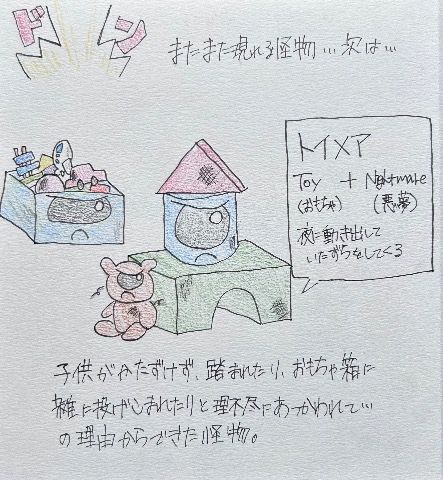 ドン
またまた現れる怪物…次は…
トイメア
Toy + Nightmare
(おもちゃ) (悪夢)
夜に動き出して
いたずらをしてくる
子供がかたずけず、踏まれたり、おもちゃ箱に
雑に投げこまれたりと理不尽にあつかわれて…
の理由からできた怪物。